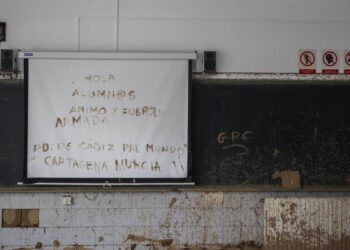 HOLA
ALUMN@S
ANIMO Y FUERZA
ARMADA
DD. DE CÁDIZ PAL MUNDO
CARTAGENA MURCIA
GRC